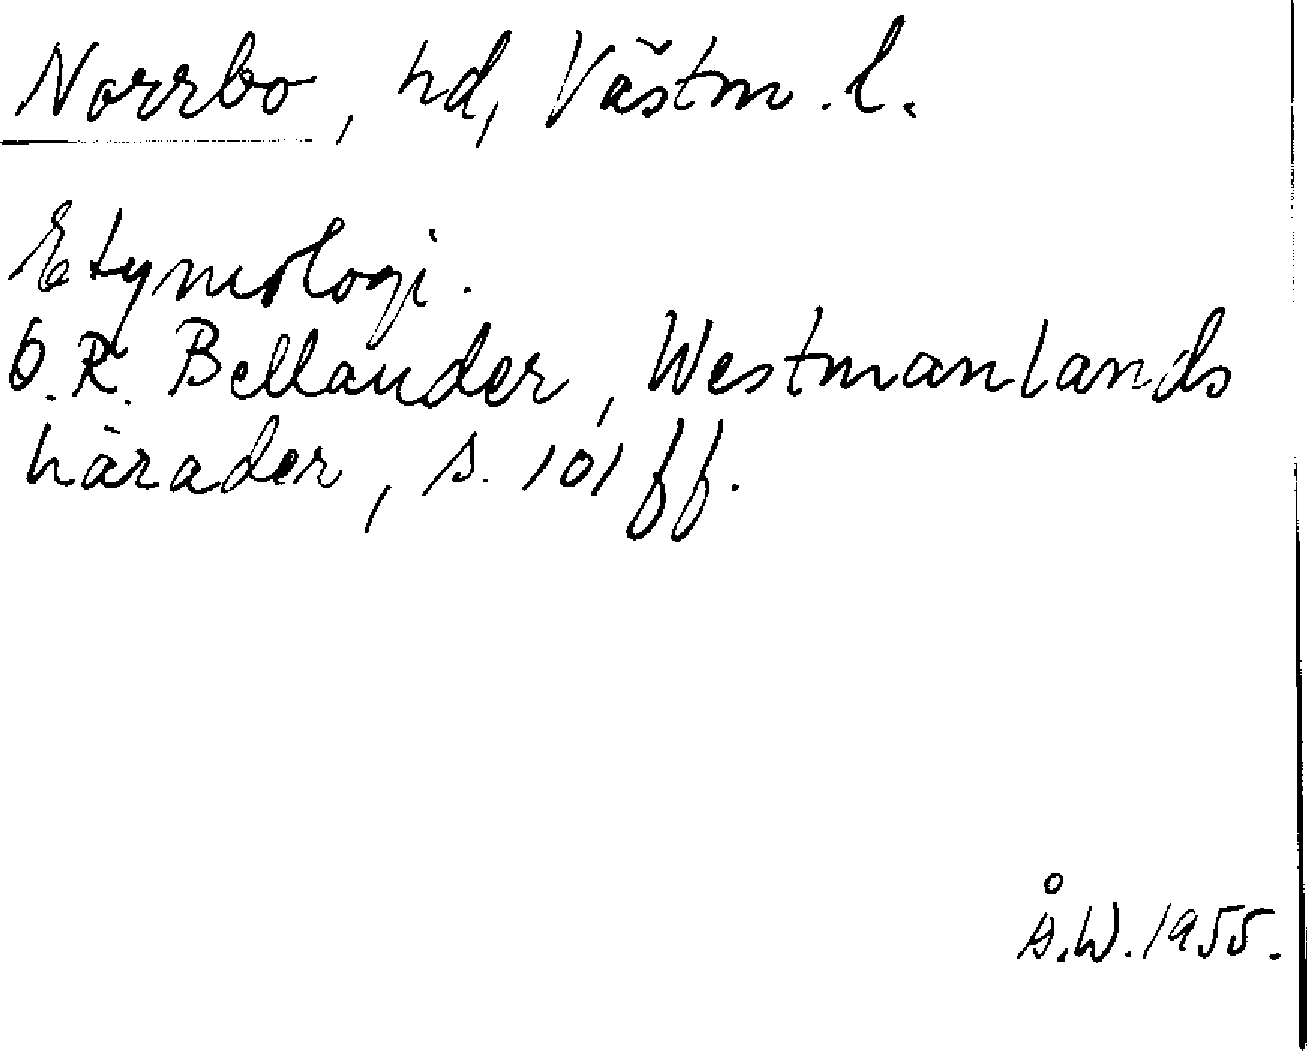 Norrbo, hd, Västm. l.
Etymologi.
O. R. Bellander, Westmanlands
härader, s. 101 ff.
Å.W. 1955.